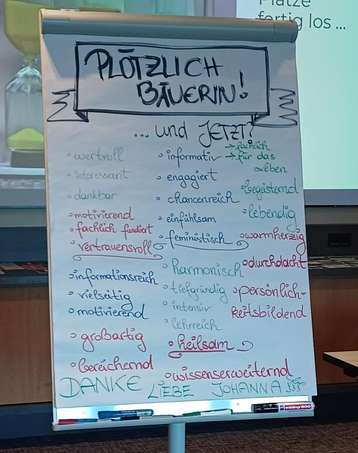 Plätze
fertig los ...
PLÖTZLICH
BÄUERIN!
... und JETZT?
wertvoll
interessant
dankbar
motivierend
fachlich fundiert
vertrauensvoll
informationsreich
vielseitig
motivierend
großartig
bereichernd
informativ → fachlich
→ für das Leben
engagiert
chancenreich
einfühlsam
feministisch
harmonisch
tiefgründig
intensiv
lehrreich
heilsam
wissenserweiternd
begeisternd
lebendig
warmherzig
durchdacht
persönlich-
keitsbildend
DANKE LIEBE JOHANNA